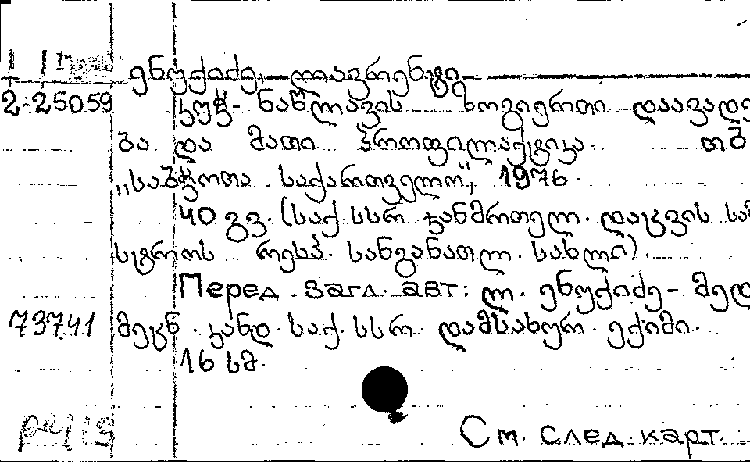 ენუქიძე, ლავრენტი
2-25059 კუჭ-ნაწლავის ზოგიერთი დაავადე
ბა და მათი პროფილაქტიკა. თბ
„საბჭოთა საქართველო", 1976.
40 გვ. (საქ სსრ ჯანმრთელ. დაცვის სამ
სტროს რესპ. სანგანათლ. სახლი).
Перед загл. авт: ლ. ენუქიძე - მედ
73741 მეცნ. კანდ. საქ. სსრ. დამსახურ. ექიმი.
16 სმ.
См. след. карт.